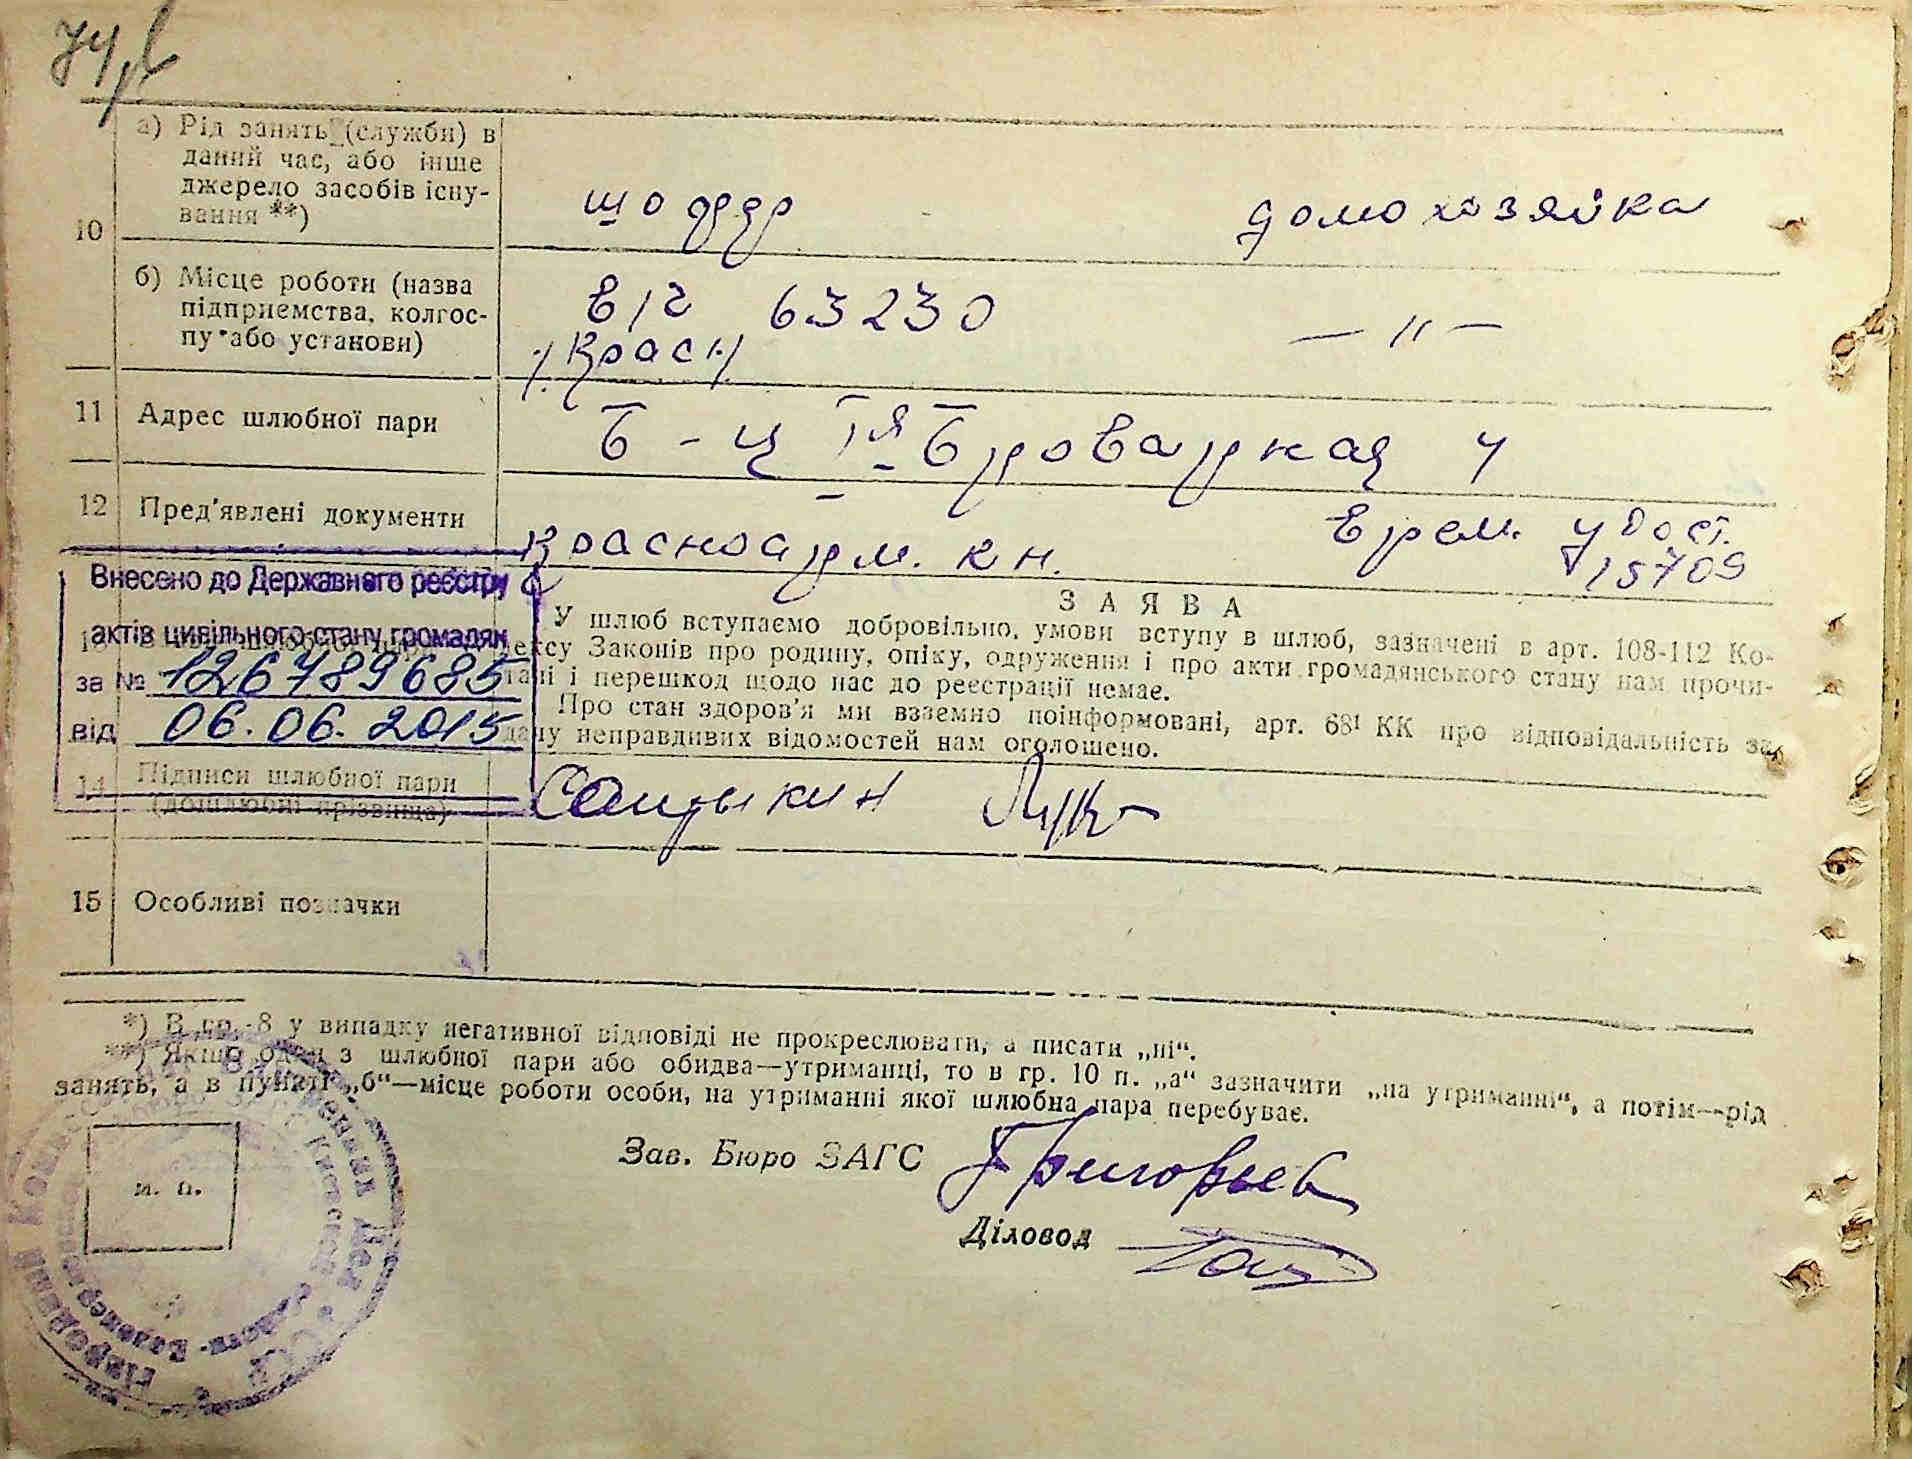 а) Рід занять (служби) в
даний час, або інше
джерело засобів існу-
вання **)
10
шоффер домохозяйка
б) Місце роботи (назва
підприємства, колгос-
пу або установи)
в/ч 63230 — „ —
/Красн/
11 Адрес шлюбної пари
Б-ц Iя Броварная 4
12 Пред'явлені документи
Красноарм. кн. Врем. удост.
15709
Внесено до Державного реєстру
актів цивільного стану громадян
за № 126789685
від 06.06.2015
13
З А Я В А
У шлюб вступаємо добровільно, умови вступу в шлюб, зазначені в арт. 108-112 Ко-
дексу Законів про родину, опіку, одруження і про акти громадянського стану нам прочи-
тані і перешкод щодо нас до реєстрації немає.
Про стан здоров'я ми взаємно поінформовані, арт. 68¹ КК про відповідальність за
дачу неправдивих відомостей нам оголошено.
14 Підписи шлюбної пари
(дошлюбні прізвища)
15 Особливі позначки
*) В гр. 8 у випадку негативної відповіді не прокреслювати, а писати „ні“.
**) Якщо один з шлюбної пари або обидва—утриманці, то в гр. 10 п. „а“ зазначити „на утриманні“, а потім—рід
занять, а в пункті „б“—місце роботи особи, на утриманні якої шлюбна пара перебуває.
м. п.
Зав. Бюро ЗАГС Григорьев
Діловод